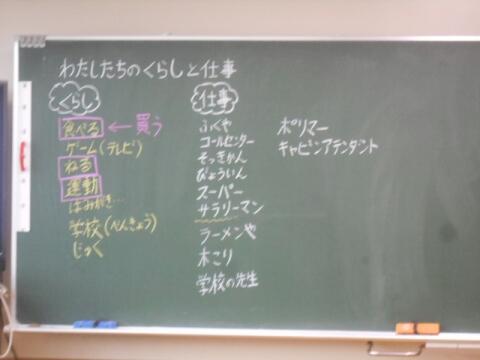 わたしたちのくらしと仕事
くらし
食べる ← 買う
ゲーム(テレビ)
ねる
運動
はみがき…
学校(べんきょう)
じゅく
仕事
ふくや
コールセンター
そっきかん
びょういん
スーパー
サラリーマン
ラーメンや
木こり
学校の先生
ポリマー
キャビンアテンダント